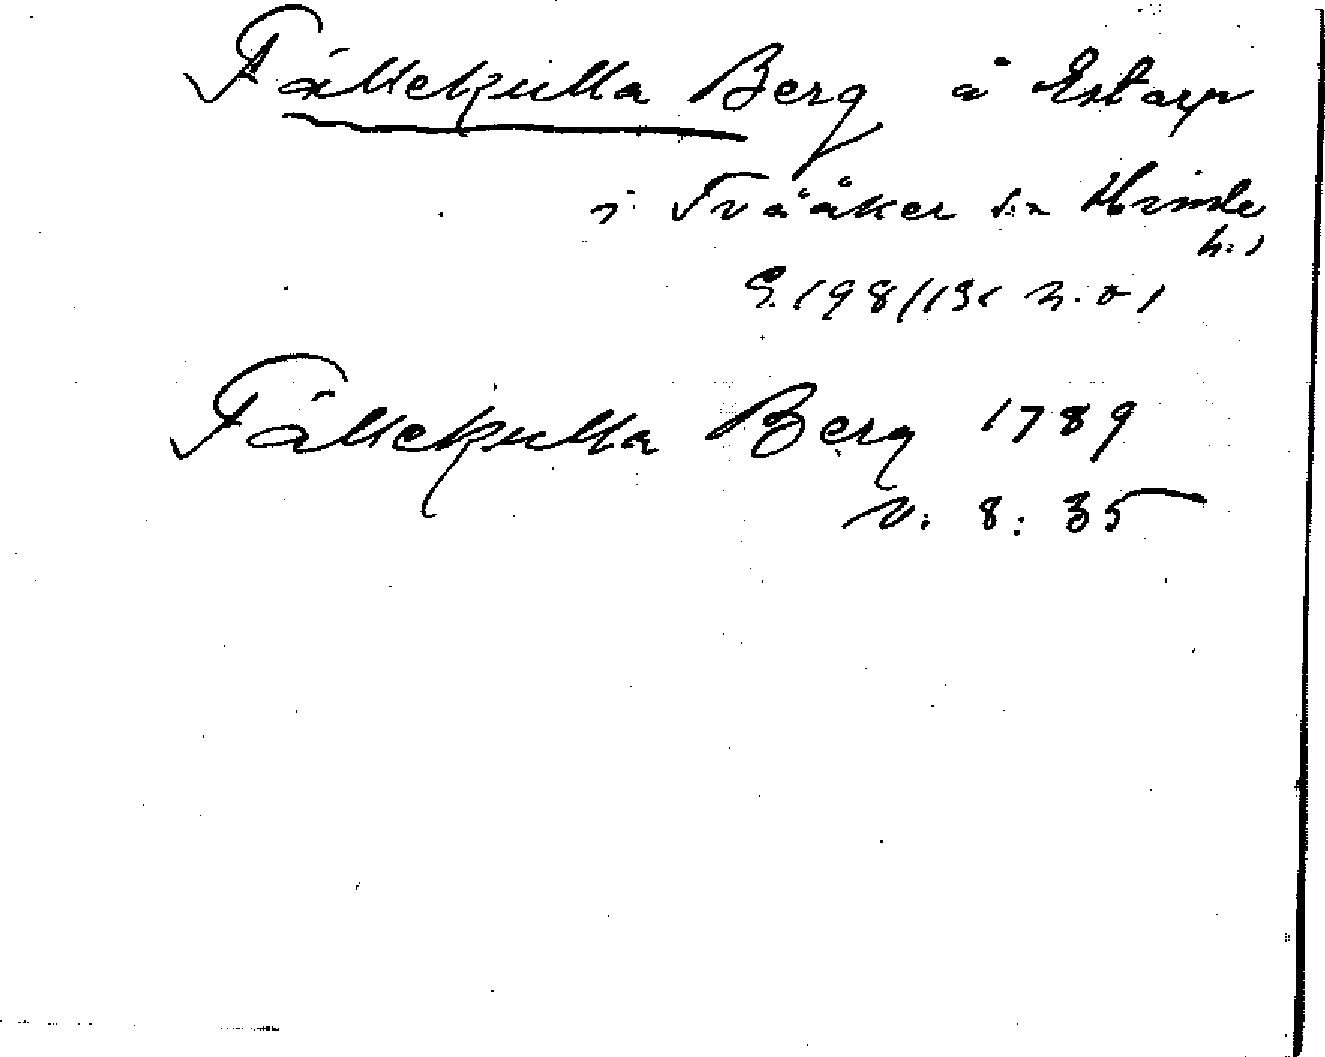 Fällekulla Berg å Estarp
i Tvååker sn Himle
h.
G. 198/131 n. o 1
Fällekulla Berg 1789
N. 8: 35